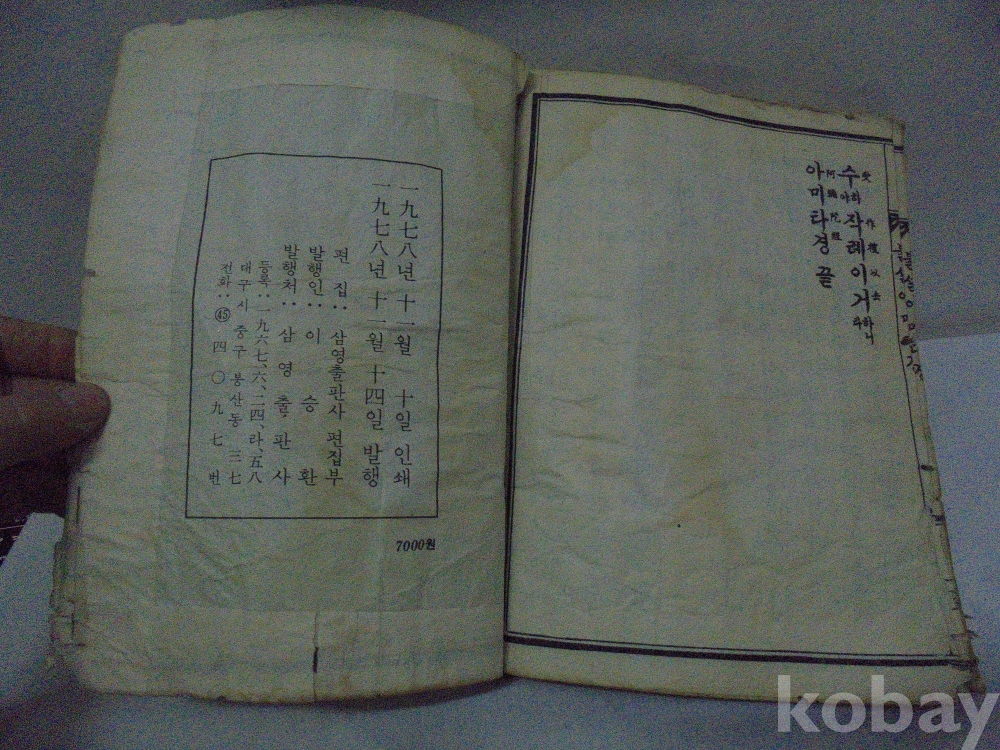 一九七八년 十一월 十일 인쇄
一九七八년 十一월 十四일 발행
편 집 : 삼영출판사 편집부
발행인 : 이 승 환
발행처 : 삼 영 출 판 사
등록 : 一九六七、六、二四、라、五八
대구시 중구 봉산동 三七
전화 : ㊺ 四〇九七번
7000원
수 작례이거 하니
作禮以去
아미타경 끝
阿彌陀經
kobay